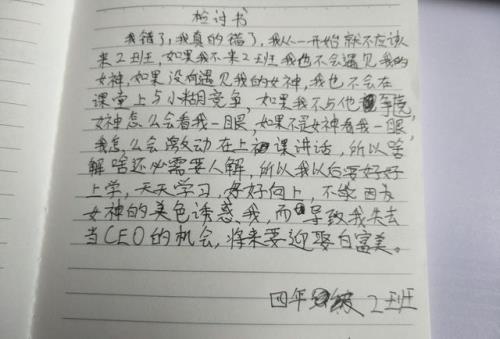 检讨书
我错了,我真的错了,我从一开始就不应该
来2班,如果我不来2班我也不会遇见我的
女神,如果没有遇见我的女神,我也不会在
课堂上与小糊竞争,如果我不与他争,
女神怎么会看我一眼,如果不是女神看我一眼,
我怎么会激动在上课讲话,所以啥
解啥还必需要人解,所以我以后要好好
上学,天天学习,好好向上,不能因为
女神的美色诱惑我,而导致我失去
当CEO的机会,将来要迎娶白富美。
四年级2班